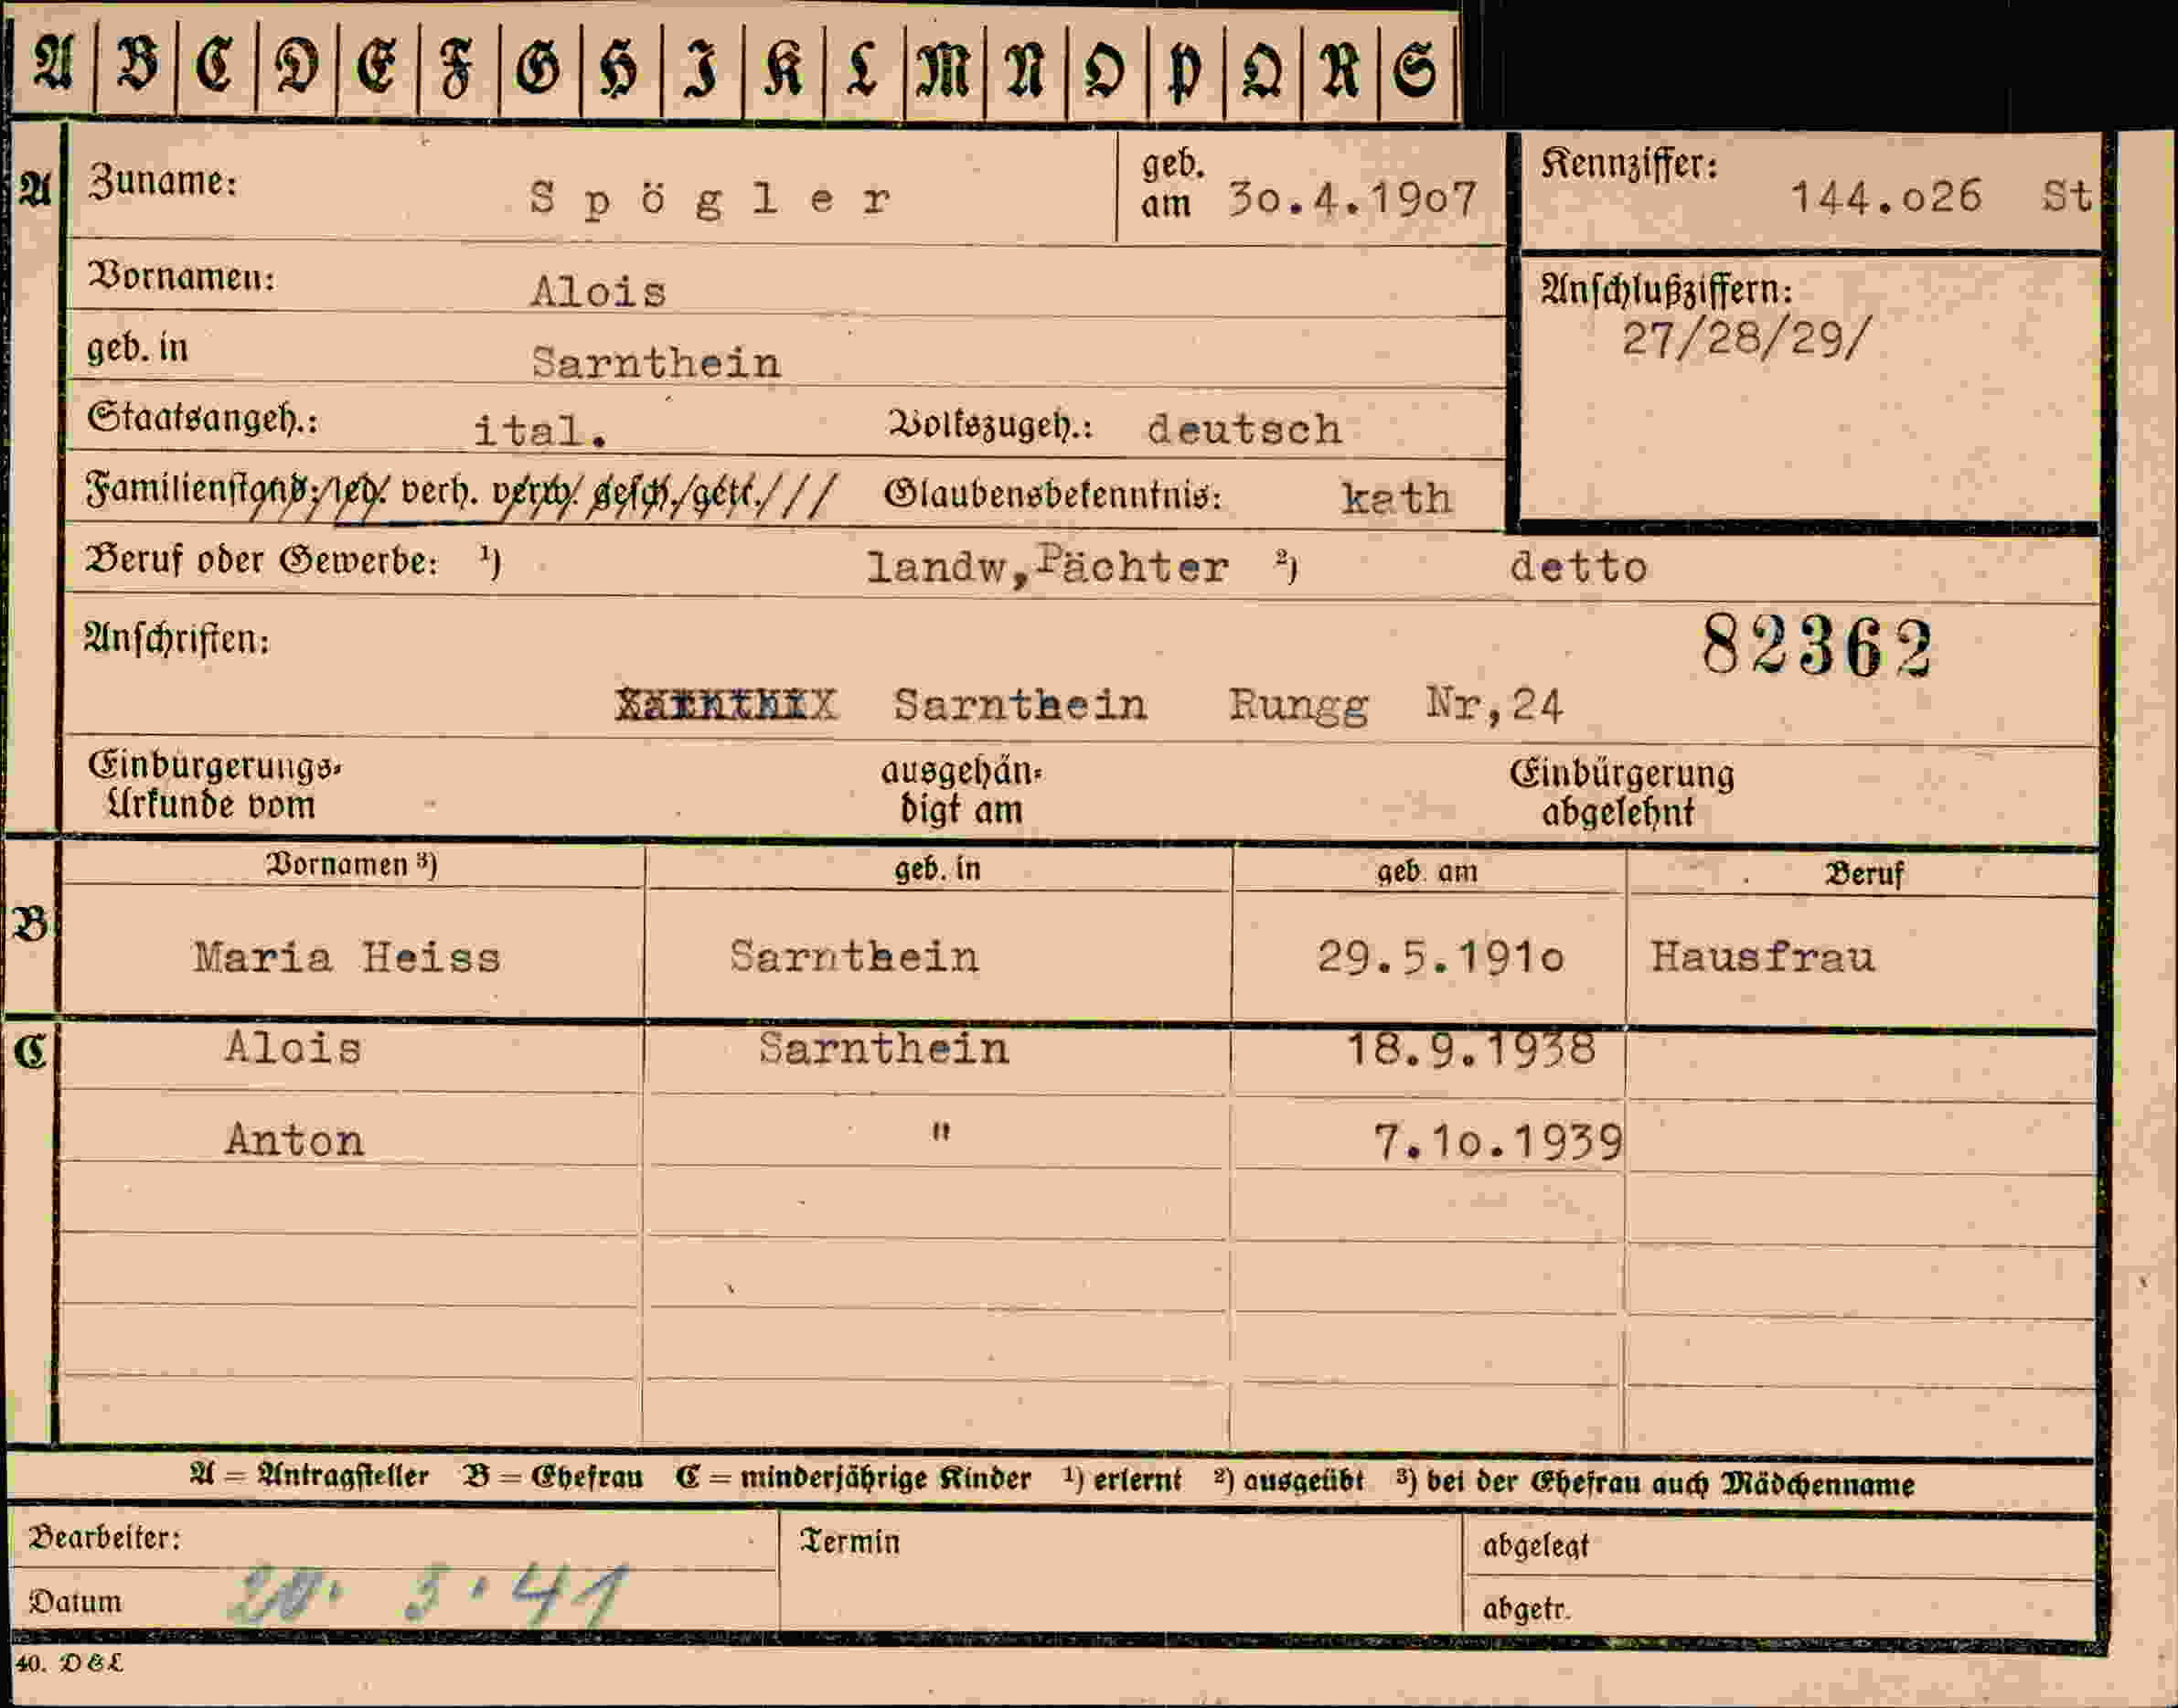 A B C D E F G H I K L M N O P Q R S
A Zuname: Spögler geb. am 30.4.1907 Kennziffer: 144.026 St
Vornamen: Alois Anschlußziffern:
27/28/29/
geb. in Sarnthein
Staatsangeh.: ital. Volkszugeh.: deutsch
Familienstand: led. verh. verw. gesch./getr./// Glaubensbekenntnis: kath
Beruf oder Gewerbe: ¹) landw,Pächter ²) detto
Anschriften: 82362
Sarnthein Rungg Nr,24
Einbürgerungs-Urkunde vom ausgehän-digt am Einbürgerung abgelehnt
Vornamen ³) geb. in geb. am Beruf
B Maria Heiss Sarnthein 29.5.1910 Hausfrau
C Alois Sarnthein 18.9.1938
Anton " 7.10.1939
A = Antragsteller B = Ehefrau C = minderjährige Kinder ¹) erlernt ²) ausgeübt ³) bei der Ehefrau auch Mädchenname
Bearbeiter: Termin abgelegt
Datum 20. 3. 41 abgetr.
40. D&L